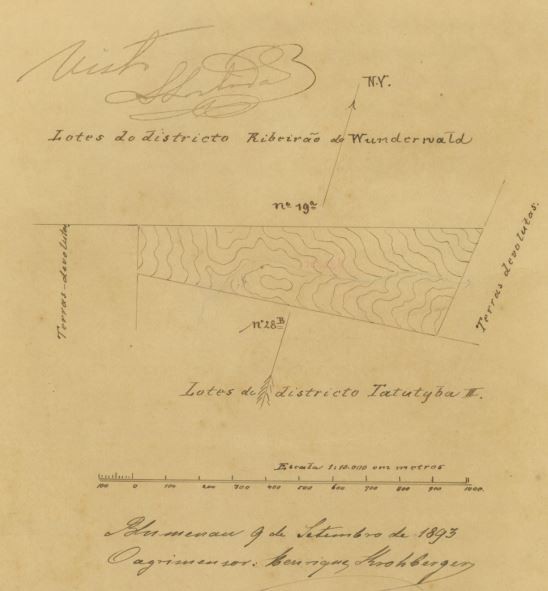 Visto
N.V.
Lotes do districto Ribeirão do Wunderwald
nº 19ª
Terras devolutas
Terras devolutas.
nº 28B
Lotes do districto Tatutyba II.
Escala 1:10.000 em metros
100 0 100 200 300 400 500 600 700 800 900 1000
Blumenau 9 de Setembro de 1893
O agrimensor: Henrique Krohberger